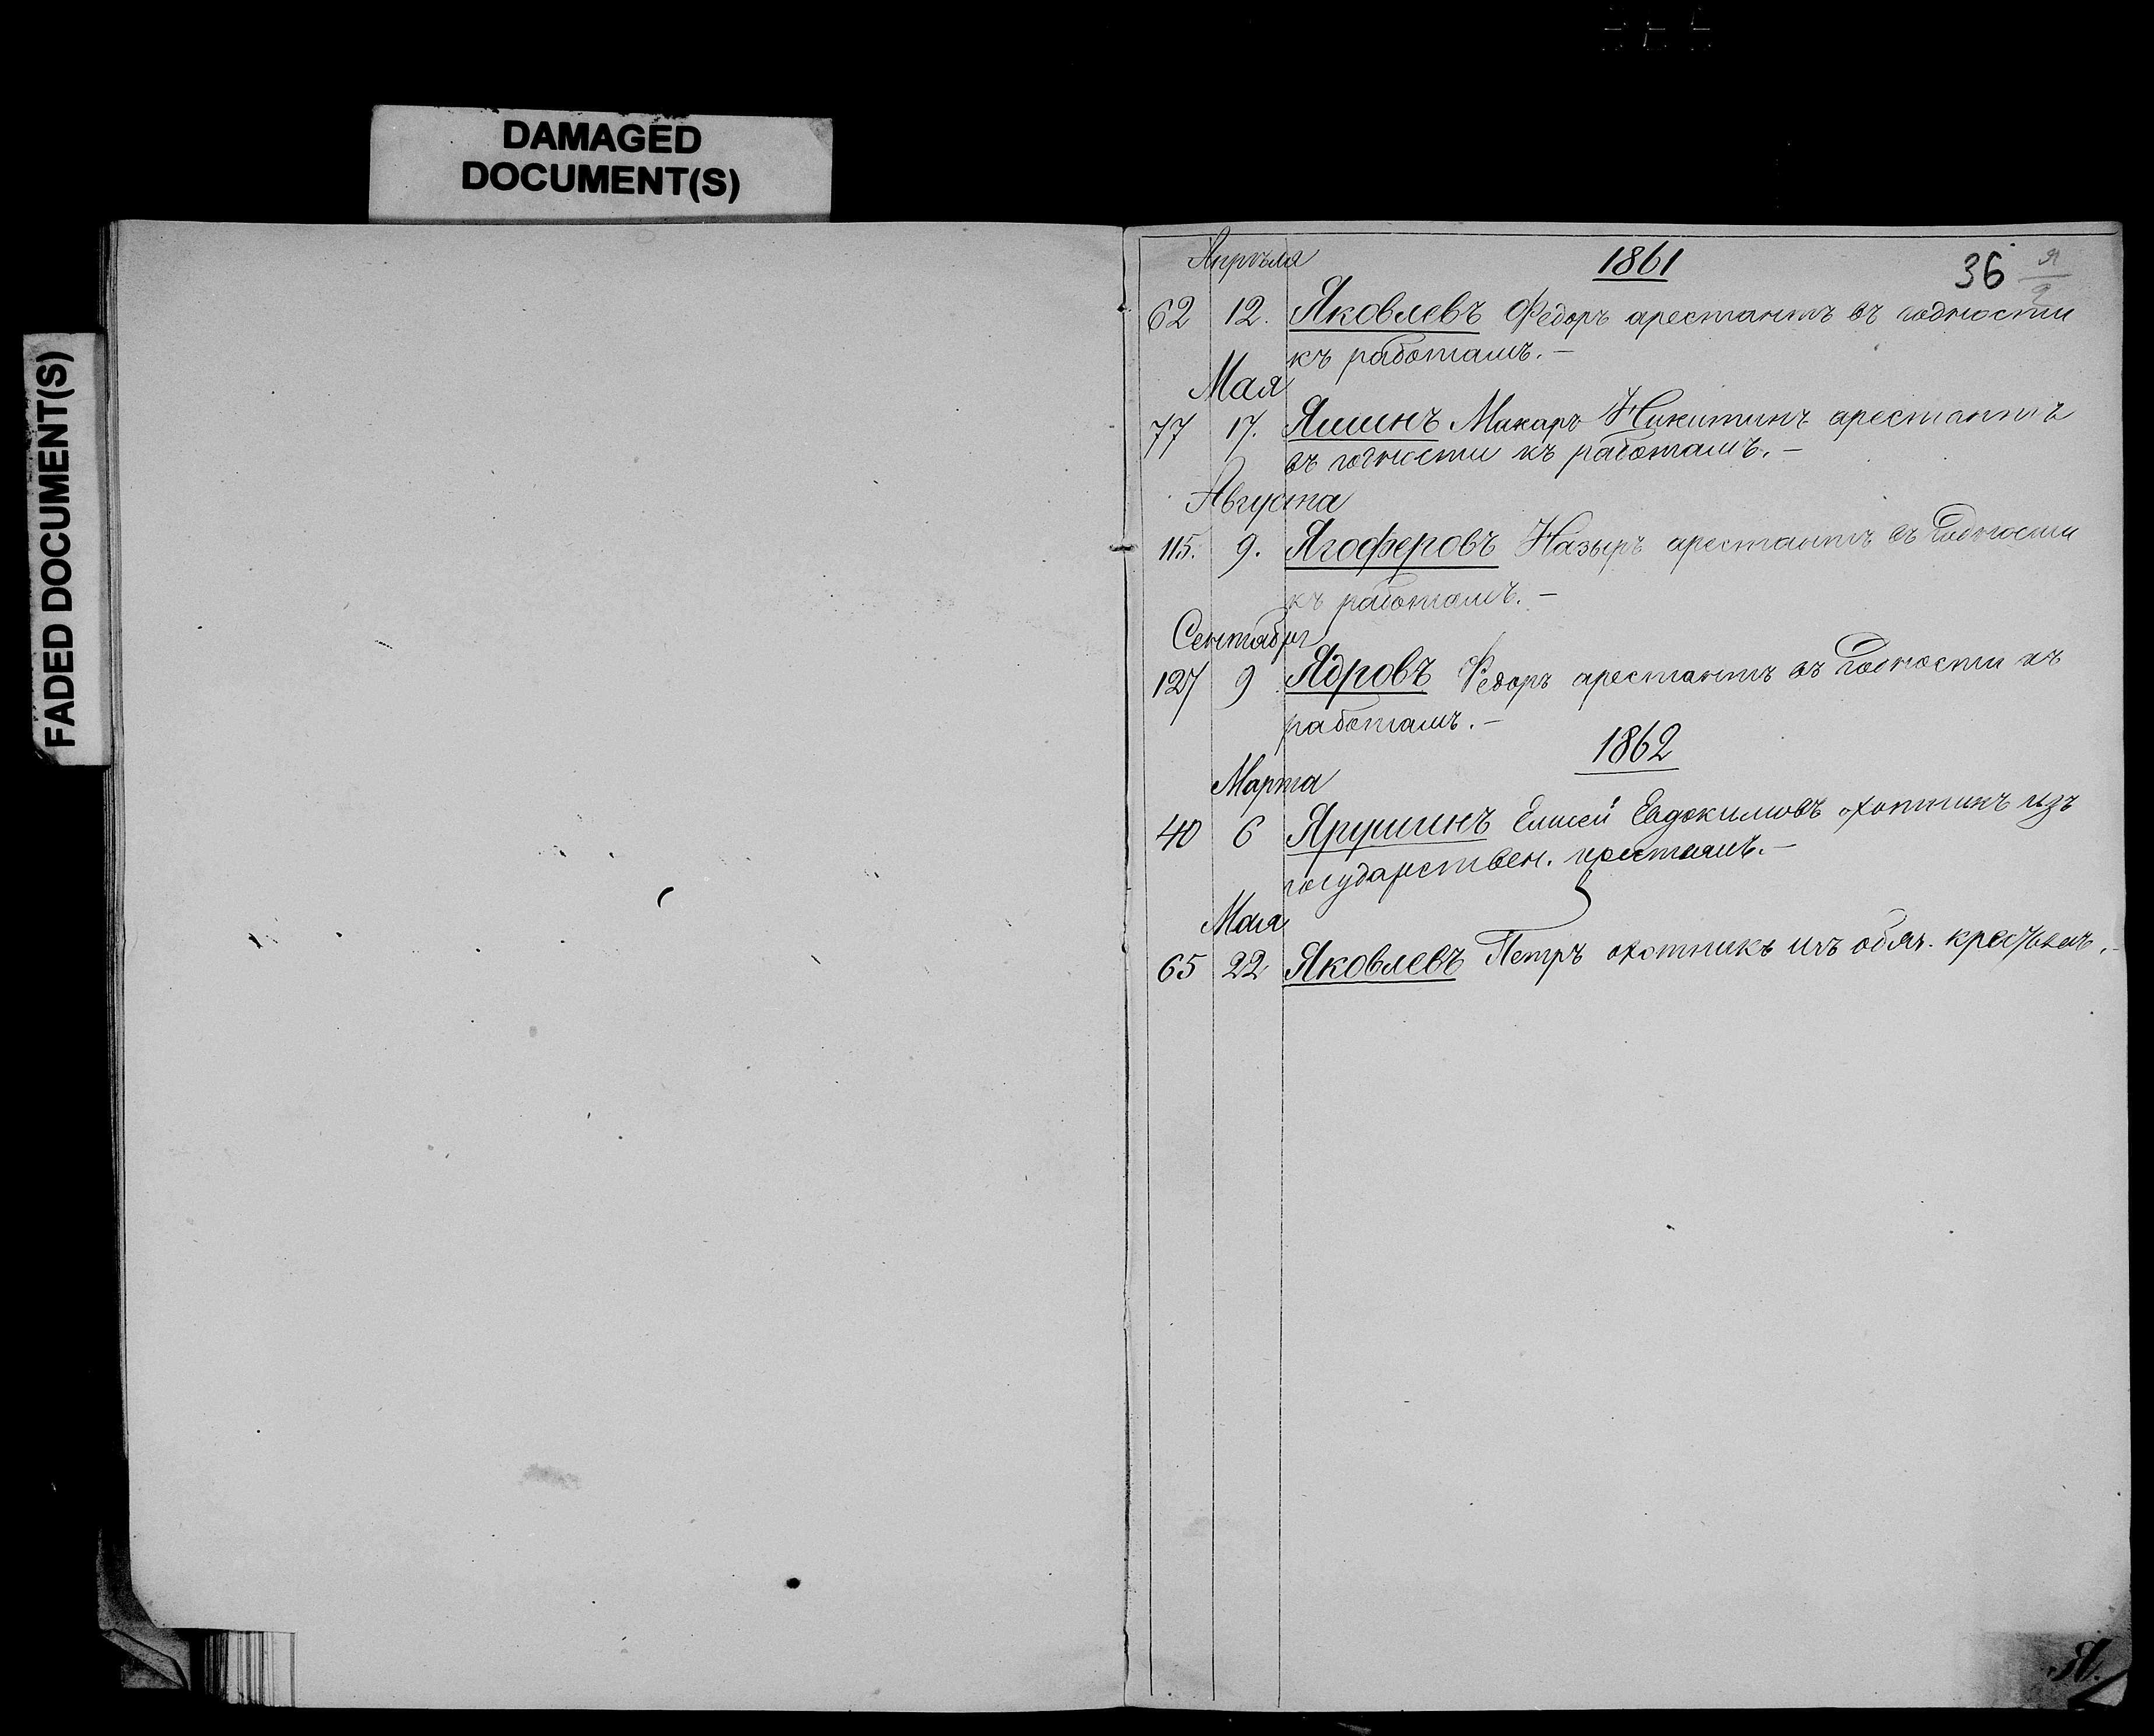 DAMAGED
DOCUMENT(S)
FADED DOCUMENT(S)
Апрѣля 1861 36 Я
2
62 12. Яковлевъ Федоръ арестантъ въ годности
къ работамъ.—
Мая
77 17. Яшинъ Макаръ Никитинъ арестантъ
въ годности къ работамъ.—
Августа
115. 9. Ягоферовъ Назыръ арестантъ въ годности
къ работамъ.—
Сентября
127 9 Ядровъ Федоръ арестантъ въ годности къ
работамъ.—
1862
Марта
40 6 Ярушинъ Елисей Евдокимовъ охотникъ изъ
государствен. крестьянъ.—
Мая
65 22 Яковлевъ Петръ охотникъ изъ обяз. крестьянъ.—
Я.